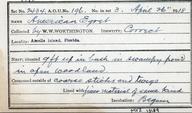 No. 3434. A.O.U. No. 196. No. in set 3. Date Apr 26th 1918
Name American Egret
Collected by W. W. WORTHINGTON. Identity: Correct
Locality: Amelia Island, Florida.
Nest: Situated 9 ft up in bush in swampy pond
in open woodland
Composed outside of coarse sticks and twigs
Lined with finer material of same kind
Incubation: Begun